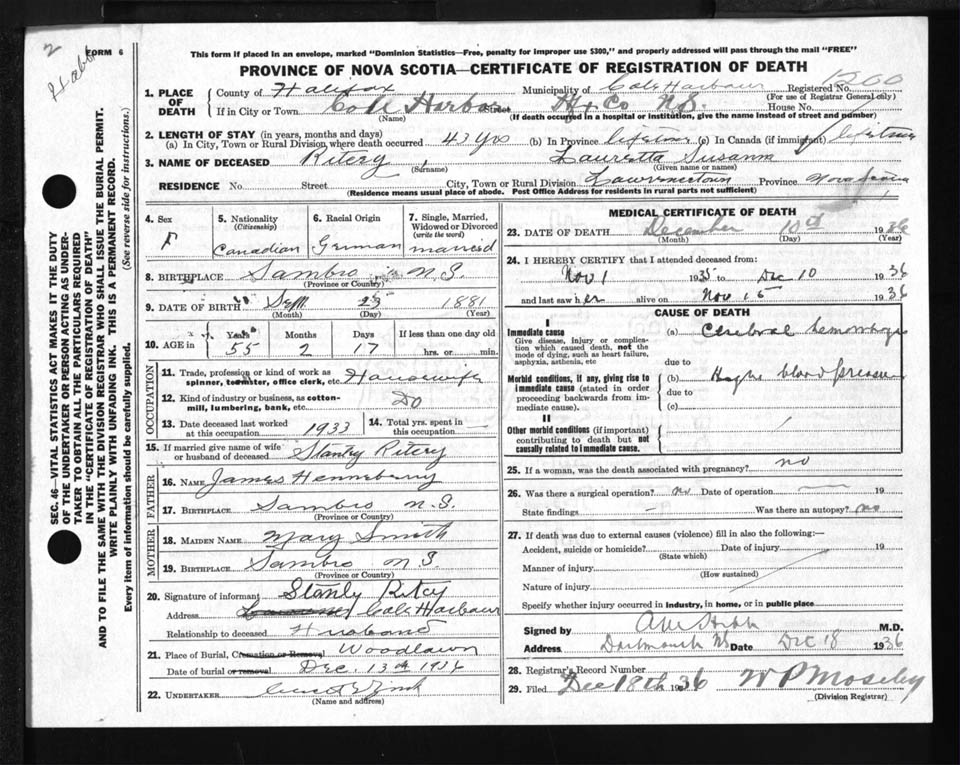 2
FORM 6
This form if placed in an envelope, marked "Dominion Statistics—Free, penalty for improper use $300," and properly addressed will pass through the mail "FREE"
PROVINCE OF NOVA SCOTIA—CERTIFICATE OF REGISTRATION OF DEATH
1. PLACE OF DEATH
County of Halifax Municipality of Cole Harbour Registered No. 1200
(For use of Registrar General only)
If in City or Town Cole Harbour Street Hx Co N.S. House No.
(Name) (If death occurred in a hospital or institution, give the name instead of street and number)
2. LENGTH OF STAY (in years, months and days)
(a) In City, Town or Rural Division where death occurred 43 yrs (b) In Province lifetime (c) In Canada (if immigrant) lifetime
3. NAME OF DECEASED Ritcy Lauretta Susanna
(Surname) (Given name or names)
RESIDENCE No. Street City, Town or Rural Division Lawrencetown Province Nova Scotia
(Residence means usual place of abode. Post Office Address for residents in rural parts not sufficient)
4. Sex F
5. Nationality (Citizenship) Canadian
6. Racial Origin German
7. Single, Married, Widowed or Divorced (write the word) married
8. BIRTHPLACE Sambro N.S.
(Province or Country)
9. DATE OF BIRTH Sept. 23 1881
(Month) (Day) (Year)
10. AGE in Years 55 Months 2 Days 17 If less than one day old hrs. or min.
OCCUPATION
11. Trade, profession or kind of work as spinner, teamster, office clerk, etc. Housewife
12. Kind of industry or business, as cotton-mill, lumbering, bank, etc. Do
13. Date deceased last worked at this occupation 1933
14. Total yrs. spent in this occupation —
15. If married give name of wife or husband of deceased Stanley Ritcy
FATHER
16. NAME James Henneberry
17. BIRTHPLACE Sambro N.S.
(Province or Country)
MOTHER
18. MAIDEN NAME Mary Smith
19. BIRTHPLACE Sambro N.S.
(Province or Country)
20. Signature of informant Stanly Ritcy
Address Cole Harbour
Relationship to deceased Husband
21. Place of Burial, Cremation or Removal Woodlawn
Date of burial or removal Dec. 13th 1936
22. UNDERTAKER
(Name and address)
MEDICAL CERTIFICATE OF DEATH
23. DATE OF DEATH December 10th 1936
(Month) (Day) (Year)
24. I HEREBY CERTIFY that I attended deceased from:
Nov 1 1935 to Dec 10 1936
and last saw her alive on Nov 15 1936
CAUSE OF DEATH
I
Immediate cause
Give disease, injury or complication which caused death, not the mode of dying, such as heart failure, asphyxia, asthenia, etc
(a) Cerebral hemorrhage
due to
Morbid conditions, if any, giving rise to immediate cause (stated in order proceeding backwards from immediate cause).
(b) High blood pressure
due to
(c)
II
Other morbid conditions (if important) contributing to death but not causally related to immediate cause.
25. If a woman, was the death associated with pregnancy? no
26. Was there a surgical operation? no Date of operation — 19
State findings — Was there an autopsy? no
27. If death was due to external causes (violence) fill in also the following:—
Accident, suicide or homicide? Date of injury 19
(State which)
Manner of injury
(How sustained)
Nature of injury
Specify whether injury occurred in industry, in home, or in public place
Signed by M.D.
Address Dartmouth NS Date Dec 18 1936
28. Registrar's Record Number
29. Filed Dec 18th 1936 W P Moseley
(Division Registrar)
SEC. 46—VITAL STATISTICS ACT MAKES IT THE DUTY
OF THE UNDERTAKER OR PERSON ACTING AS UNDER-
TAKER TO OBTAIN ALL THE PARTICULARS REQUIRED
IN THE "CERTIFICATE OF REGISTRATION OF DEATH"
AND TO FILE THE SAME WITH THE DIVISION REGISTRAR WHO SHALL ISSUE THE BURIAL PERMIT.
WRITE PLAINLY WITH UNFADING INK. THIS IS A PERMANENT RECORD.
Every item of information should be carefully supplied. (See reverse side for instructions.)